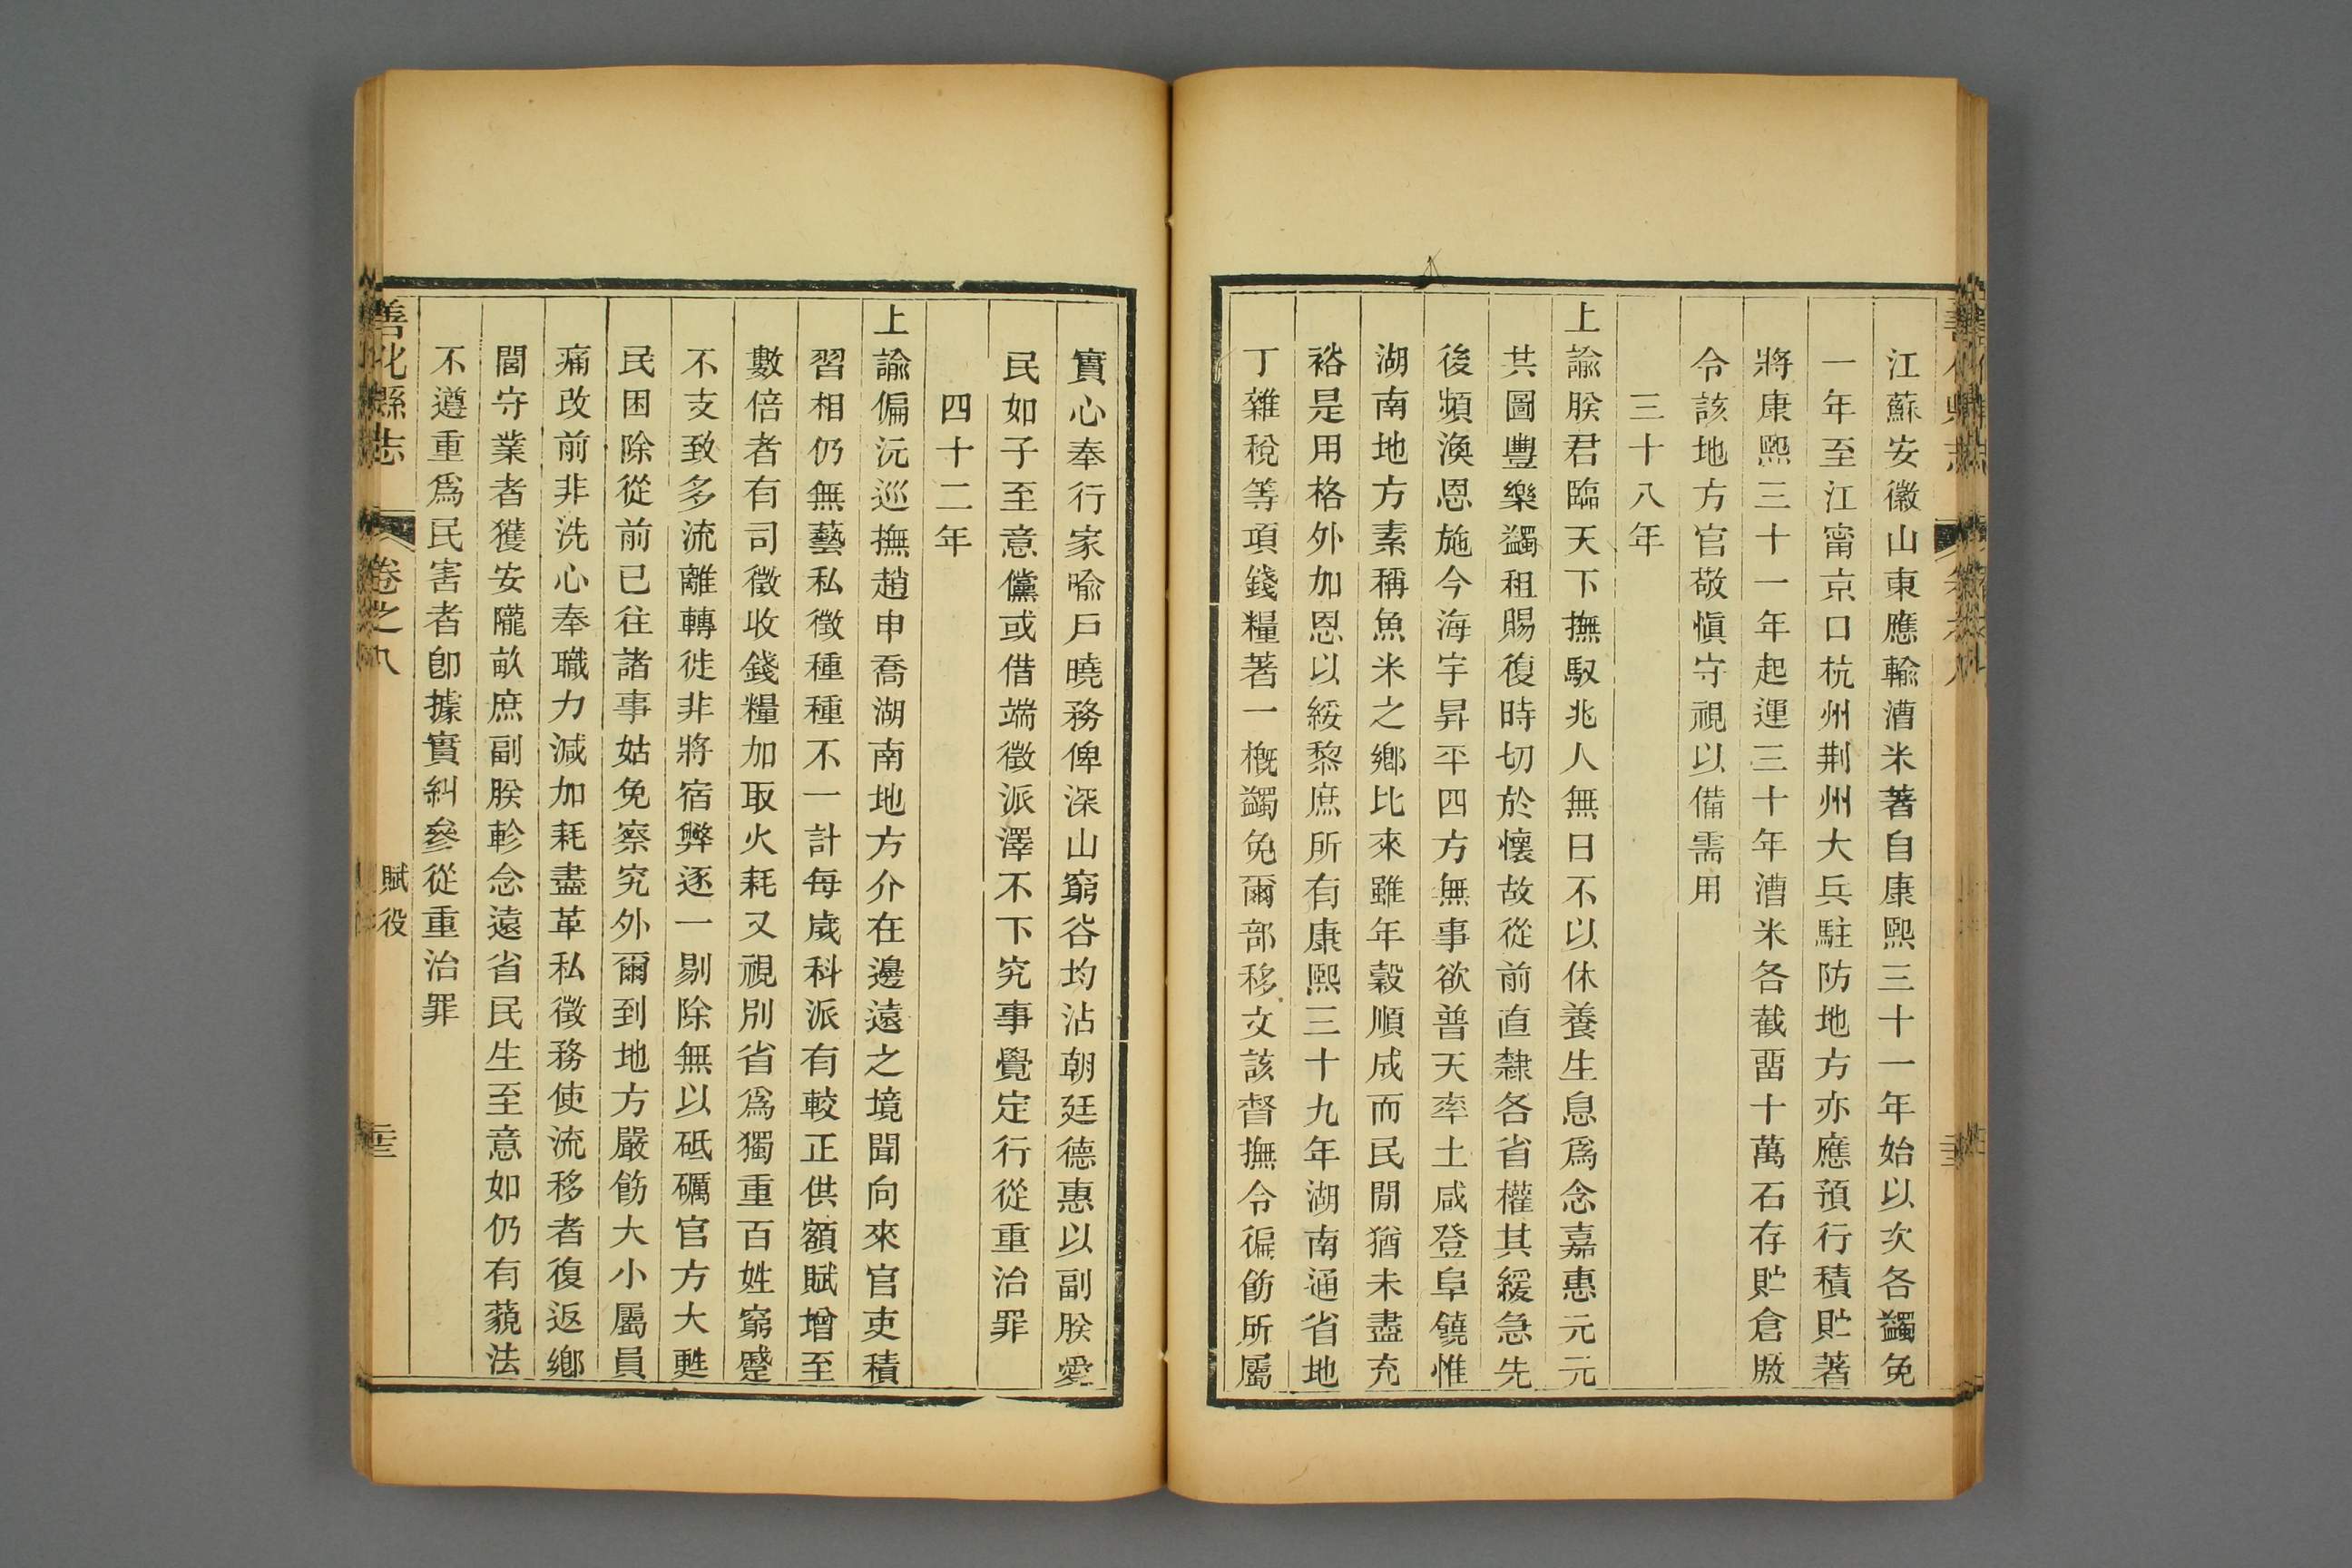 江蘇安徽山東應輸漕米著自康熙三十一年始以次各蠲免
一年至江甯京口杭州荆州大兵駐防地方亦應預行積貯著
將康熙三十一年起運三十年漕米各截畱十萬石存貯倉厫
令該地方官敬愼守視以備需用
三十八年
上諭朕君臨天下撫馭兆人無日不以休養生息爲念嘉惠元元
共圖豐樂蠲租賜復時切於懷故從前直隸各省權其緩急先
後頻渙恩施今海宇昇平四方無事欲普天率土咸登阜饒惟
湖南地方素稱魚米之鄕比來雖年穀順成而民閒猶未盡充
裕是用格外加恩以綏黎庶所有康熙三十九年湖南通省地
丁雜稅等項錢糧著一槪蠲免爾部移文該督撫令徧飭所屬
實心奉行家喩戶曉務俾深山窮谷均沾朝廷德惠以副朕愛
民如子至意儻或借端徵派澤不下究事覺定行從重治罪
四十二年
上諭偏沅巡撫趙申喬湖南地方介在邊遠之境聞向來官吏積
習相仍無藝私徵種種不一計每歲科派有較正供額賦增至
數倍者有司徵收錢糧加取火耗又視別省爲獨重百姓窮蹙
不支致多流離轉徙非將宿弊逐一剔除無以砥礪官方大甦
民困除從前已往諸事姑免察究外爾到地方嚴飭大小屬員
痛改前非洗心奉職力減加耗盡革私徵務使流移者復返鄕
閭守業者獲安隴畝庶副朕軫念遠省民生至意如仍有藐法
不遵重爲民害者卽據實糾參從重治罪
善化縣志
卷之八
賦役